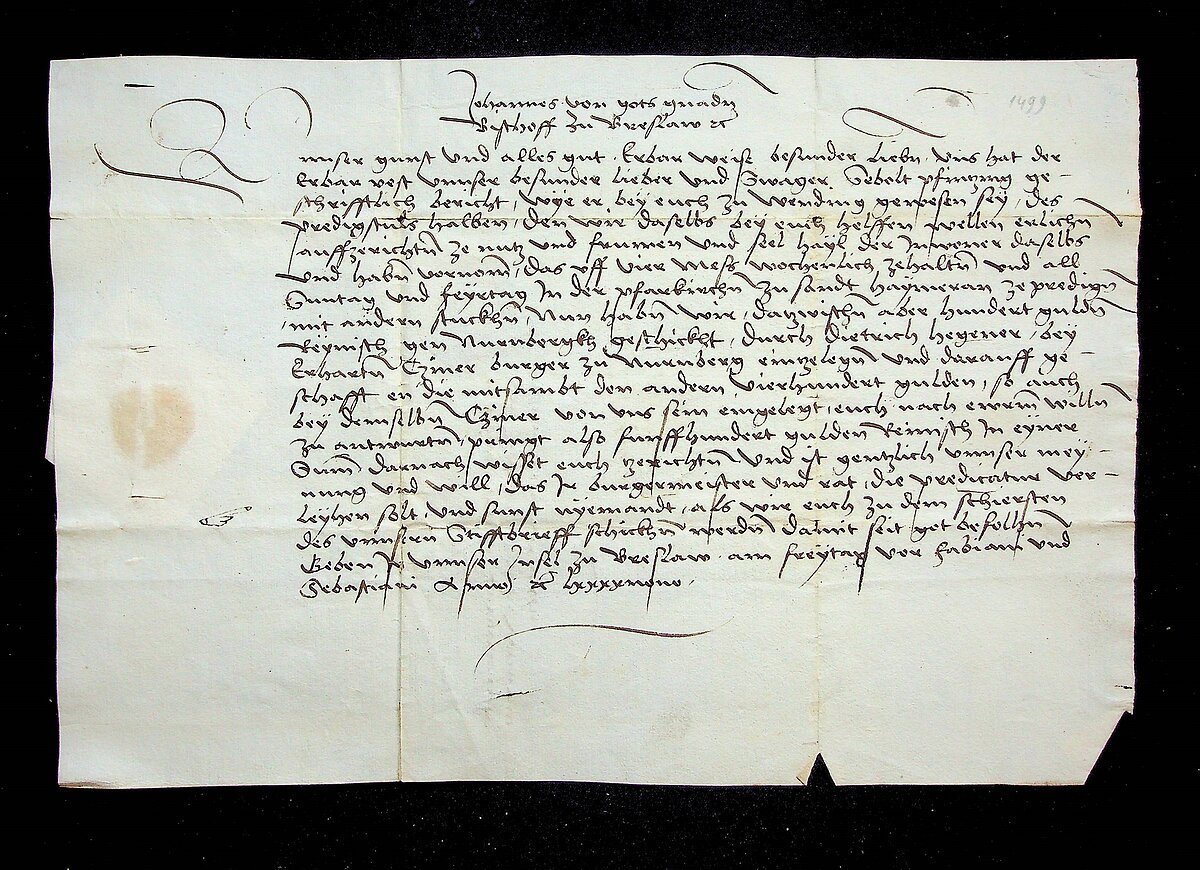 Johannes von gots gnadn
Bischoff zu Breslaw etc
1499
Unnser gunst und alles gut. Erbar weise besunder liebn. uns hat der
Erbar vest unnser besunder lieber und Swager Sebolt pfintzing ge-
schrifftlich bericht, wye er bey euch zu Wending gewesen sey, des
predigstuls halben, den wir daselbs bey euch helffen wellen erlichn
auffzerichtn ze nutz und frumen und seel hayl der Inwoner daselbs
und habn vornom, das uff vier mess wochenlich zehaltn und all
Suntag und feyrtag In der pfarkirchn zu sandt haymeran ze predign
mit andern stuckhn, Nun habn wir, datzwischn aber hundert guldn
Reynisch gen Nurnbergkh geschickht, durch Dietrich hegener, bey
Erhartn Cziner burger zu Nurnberg eintzelegn und darauff ge-
schafft en die mitsambt den andern vierhundert gulden, so auch
bey demselbn Cziner von uns sein eingelegt, euch nach ewerm willn
zu antwurtn, pringt also funffhundert gulden Reinisch In eyner
Sum darnach wisset euch zerichtn Und ist gentzlich unnser mey-
nung und will, das Ir burgermeister und rat, die predicatur ver-
leyhen solt, und sunst nyemandt, als wir euch zu dem schiersten
des unnsern Stifftbrieff schickhn werdn damit seit got befolhn
Geben In unnser Insel zu Breslaw. am freytag vor fabiani und
Sebastiani Anno etc lxxxxnono.